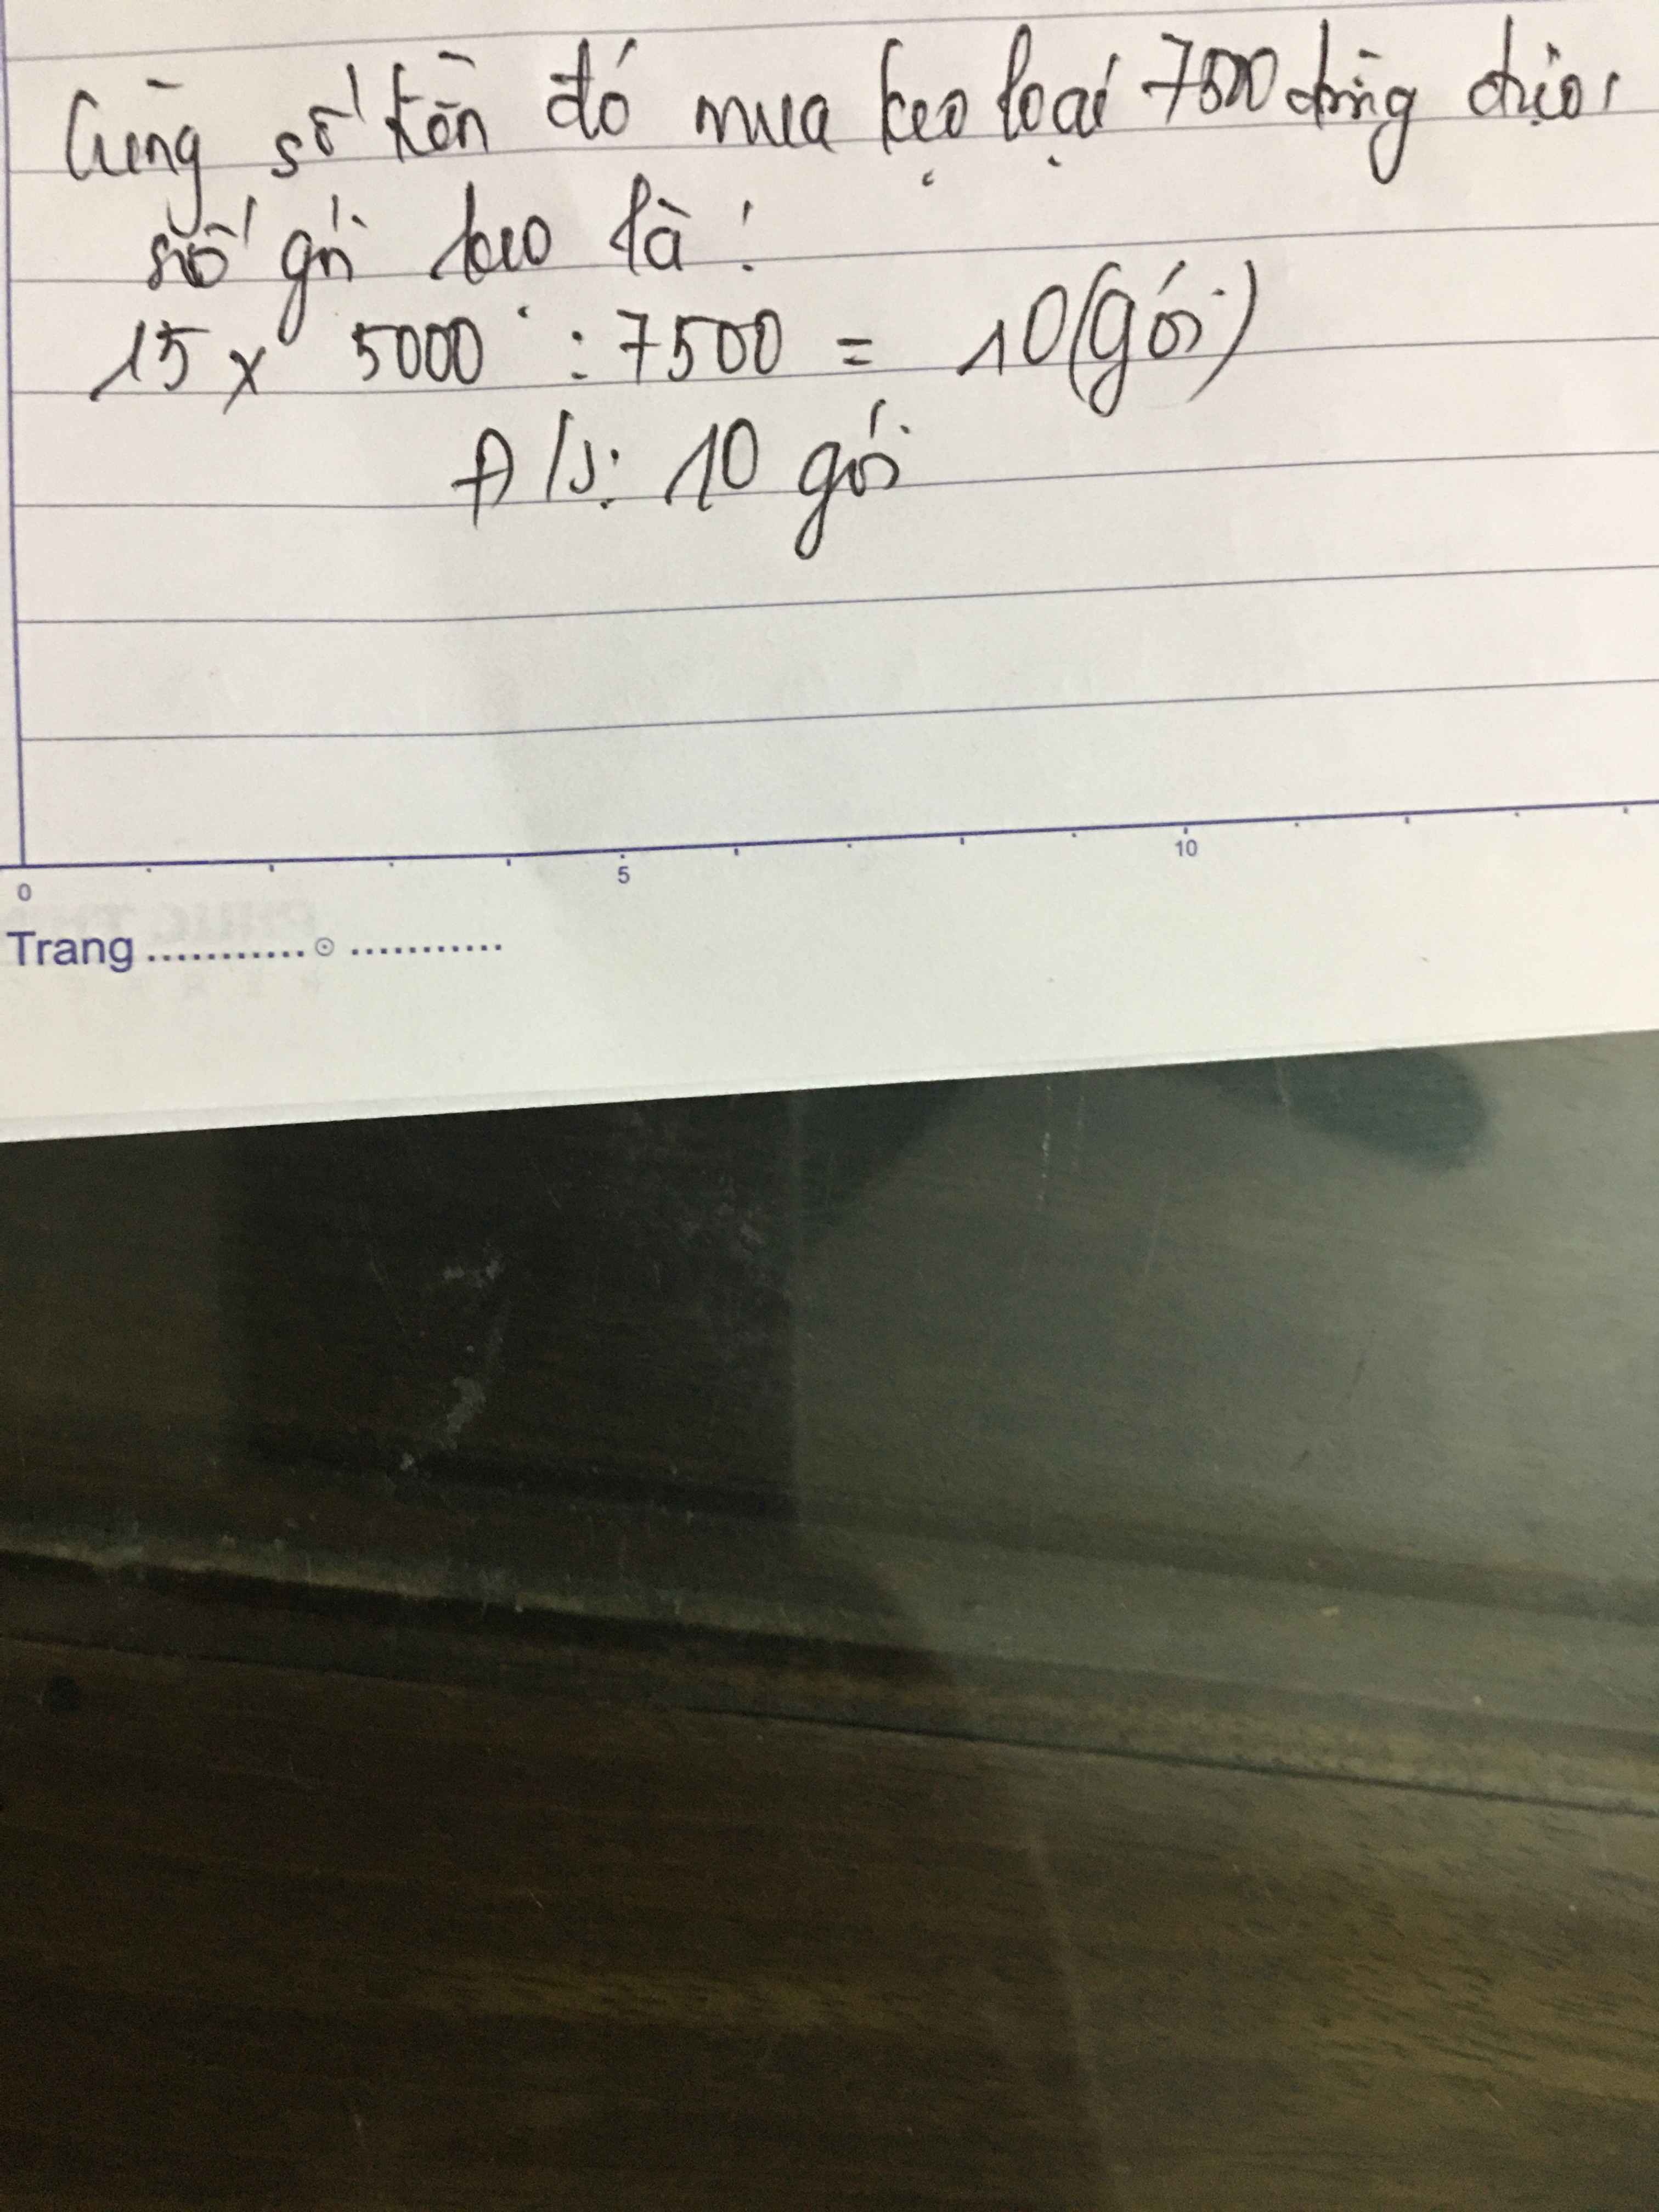 Cùng số tiền đó mua kẹo loại 7500 đồng được
số gói kẹo là:
15 x 5000 : 7500 = 10 (gói)
Đ/S: 10 gói
0 5 10
Trang ........... ⊙ ...........